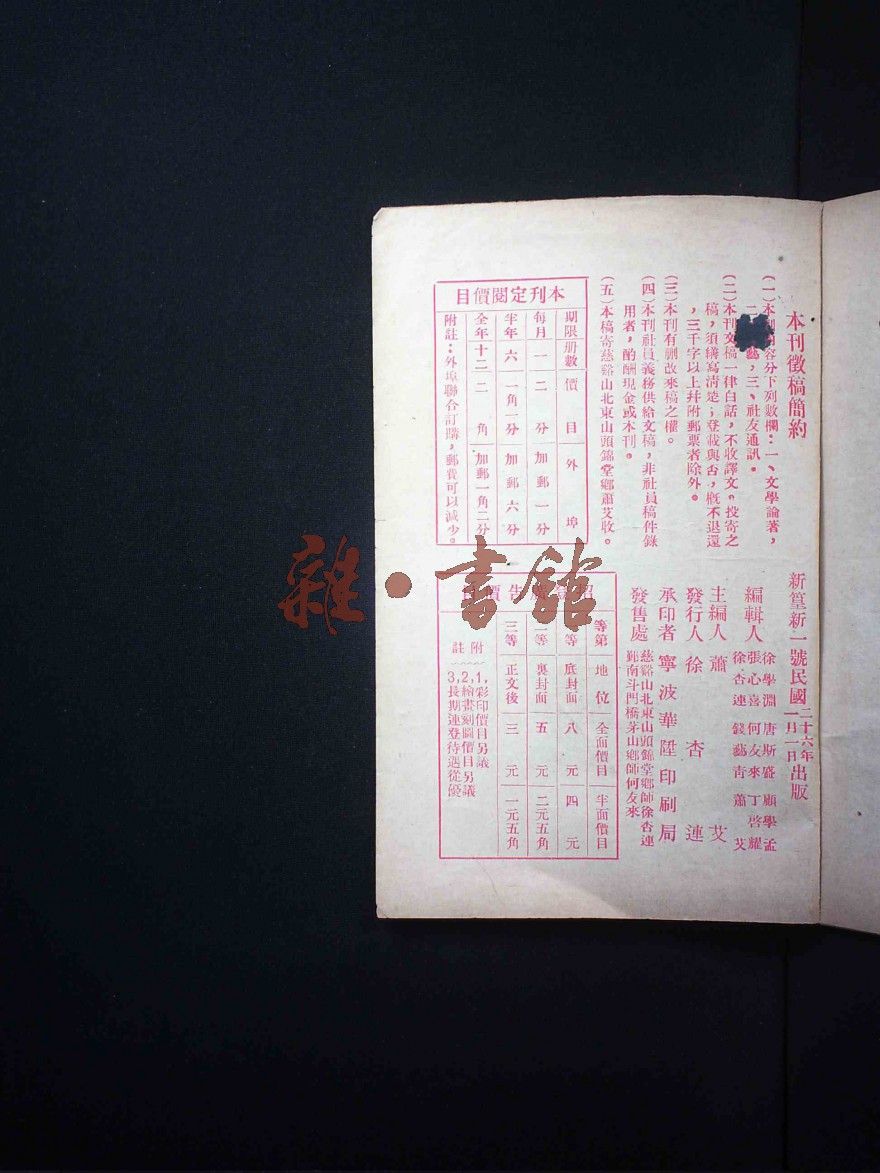 本刊徵稿簡約
（一）本刊內容分下列數欄：一、文學論著，
二、文藝，三、社友通訊。
（二）本刊文稿一律白話，不收譯文。投寄之
稿，須繕寫清楚；登載與否，概不退還
，三千字以上幷附郵票者除外。
（三）本刊有刪改來稿之權。
（四）本刊社員義務供給文稿，非社員稿件錄
用者，酌酬現金或本刊。
（五）本稿寄慈谿山北東山頭錦堂鄉蕭艾收。
本刊定閱價目
期限 册數 價目 外埠
每月 一 二分 加郵一分
半年 六 一角一分 加郵六分
全年 十二 二角 加郵一角二分
附註：外埠聯合訂購，郵費可以減少。
新篁新一號民國二十六年一月一日出版
編輯人
徐學淵 唐斯盛 顧學孟
張心喜 何友來 丁啓耀
徐杏連 錢藝青 蕭艾
主編人 蕭艾
發行人 徐杏連
承印者 寧波華陞印刷局
發售處
慈谿山北東山頭錦堂鄉師徐杏連
鄞南斗門橋茅山鄉師何友來
告價
等第 地位 全面價目 半面價目
等 底封面 八元 四元
二等 裏封面 五元 二元五角
三等 正文後 三元 一元五角
附註
1,彩印價目另議
2,繪畫刻圖價目另議
3,長期連登待遇從優
雜·書館